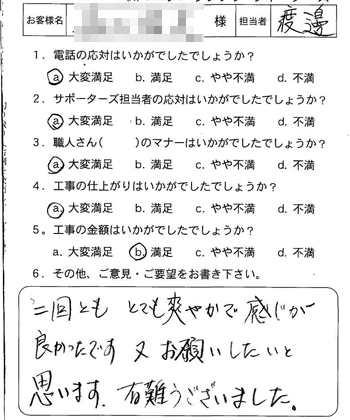 お客様名 様 担当者 渡邊
1．電話の応対はいかがでしたでしょうか？
a 大変満足 b. 満足 c. やや不満 d. 不満
2．サポーターズ担当者の応対はいかがでしたでしょうか？
a 大変満足 b. 満足 c. やや不満 d. 不満
3．職人さん（　　）のマナーはいかがでしたでしょうか？
a 大変満足 b. 満足 c. やや不満 d. 不満
4．工事の仕上がりはいかがでしたでしょうか？
a 大変満足 b. 満足 c. やや不満 d. 不満
5．工事の金額はいかがでしたでしょうか？
a. 大変満足 b 満足 c. やや不満 d. 不満
6．その他、ご意見・ご要望をお書き下さい。
二回とも とても爽やかで 感じが
良かったです 又 お願いしたいと
思います。有難うございました。